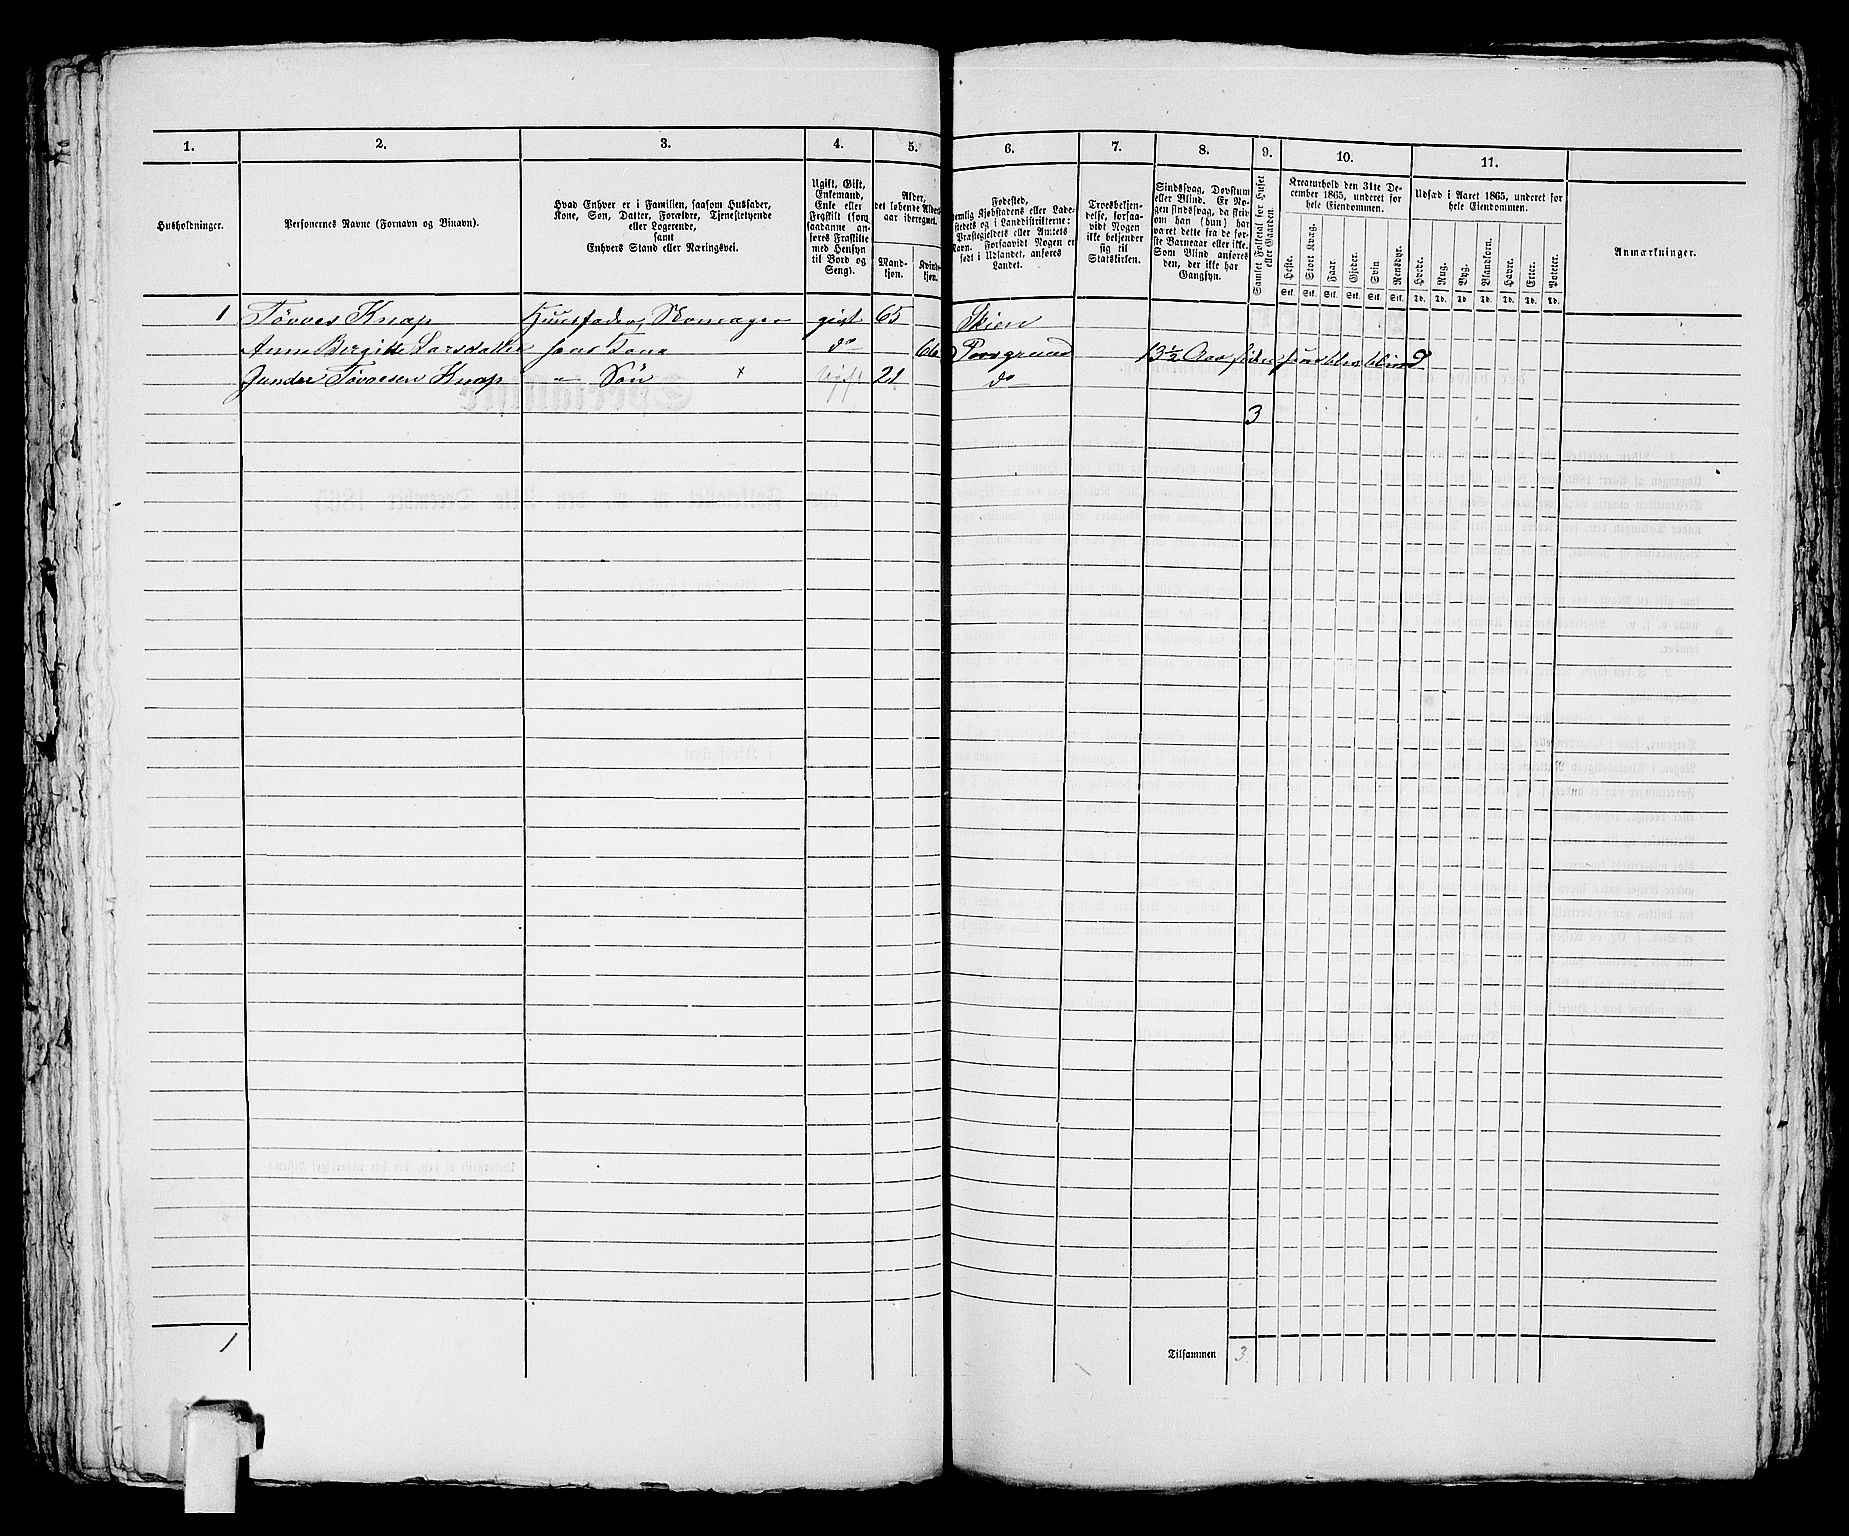 1. 2. 3. 4. 5. 6. 7. 8. 9. 10. 11.
Husholdninger.
Personernes Navne (Fornavn og Binavn).
Hvad Enhver er i Familien, saasom Husfader,
Kone, Søn, Datter, Forældre, Tjenestetyende
eller Logerende,
samt
Enhvers Stand eller Næringsvei.
Ugift, Gift,
Enkemand,
Enke eller
Fraskilt (som
saadanne an-
føres Fraskilte
med Hensyn
til Bord og
Seng).
Alder,
det løbende Alders-
aar iberegnet.
Mand-
kjøn.
Kvinde-
kjøn.
Fødested,
nemlig Kjøbstadens eller Lade-
stedets og i Landdistrikterne:
Præstegjeldets eller Amtets
Navn. Forsaavidt Nogen er
født i Udlandet, anføres
Landet.
Troesbekjen-
delse, forsaa-
vidt Nogen
ikke bekjender
sig til
Statskirken.
Sindssvag, Døvstum
eller Blind. Er No-
gen sindssvag, da skriv
om han (hun) har
været dette fra de før-
ste Barneaar eller ikke.
Som Blind anføres
den, der ikke har
Gangsyn.
Samlet Folketal for Huset
eller Gaarden.
Kreaturhold den 31te De-
cember 1865, underet for
hele Eiendommen.
Heste. Stort Kvæg. Faar. Gjeder. Svin Rensdyr.
Stk. Stk. Stk. Stk. Stk. Stk.
Udsæd i Aaret 1865, underet for
hele Eiendommen.
Hvede. Rug. Byg. Blandkorn. Havre. Erter. Poteter.
Td. Td. Td. Td. Td. Td. Td.
Anmærkninger.
1 Tøvves Knap Huusfader, Skomager gift 65 Skien
Anne Bergitte Larsdatter hans Kone do 66 Porsgrund 13½ Aar siden hun blev blind
Gunder Tøvvesen Knap " Søn × Ugift 21 do
3
1
Tilsammen 3